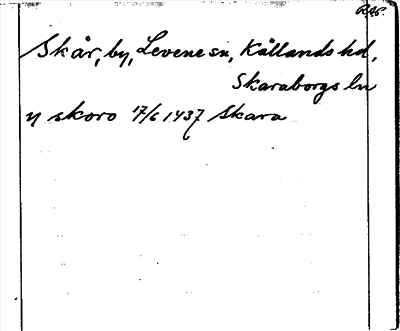 Skår, by, Levene sn, Kållands hd,
Skaraborgs ln
y skoro 17/6 1437 Skara